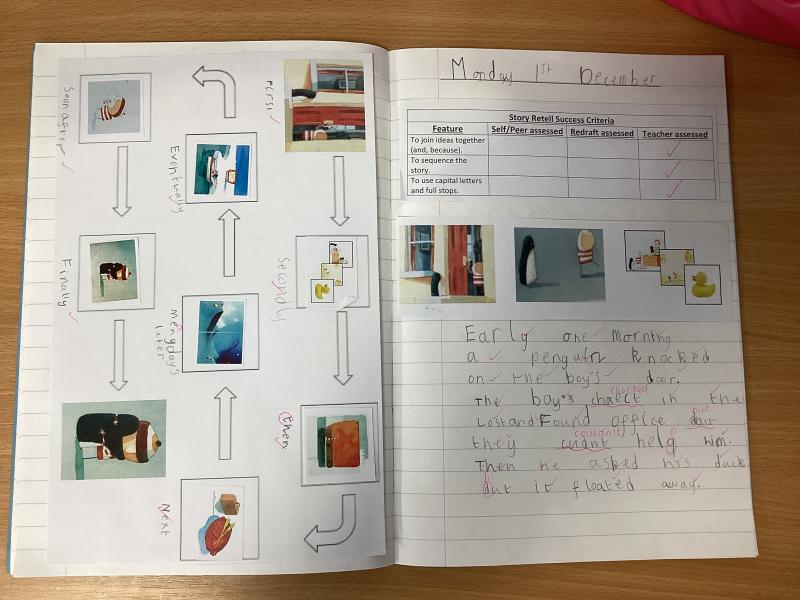 First
Secondly
then
Next
Mengday's
later
Eventually
Soon after
Finally
Monday 1st December
Story Retell Success Criteria
Feature Self/Peer assessed Redraft assessed Teacher assessed
To join ideas together
(and, because).
To sequence the
story.
To use capital letters
and full stops.
Early one Morning
a penguin knocked
on the boy's door.
checked
The boy's chxect in the
but
Lost and Found office dut
couldn't
they cudnt help him.
Then he asked his duck
but it floated away.